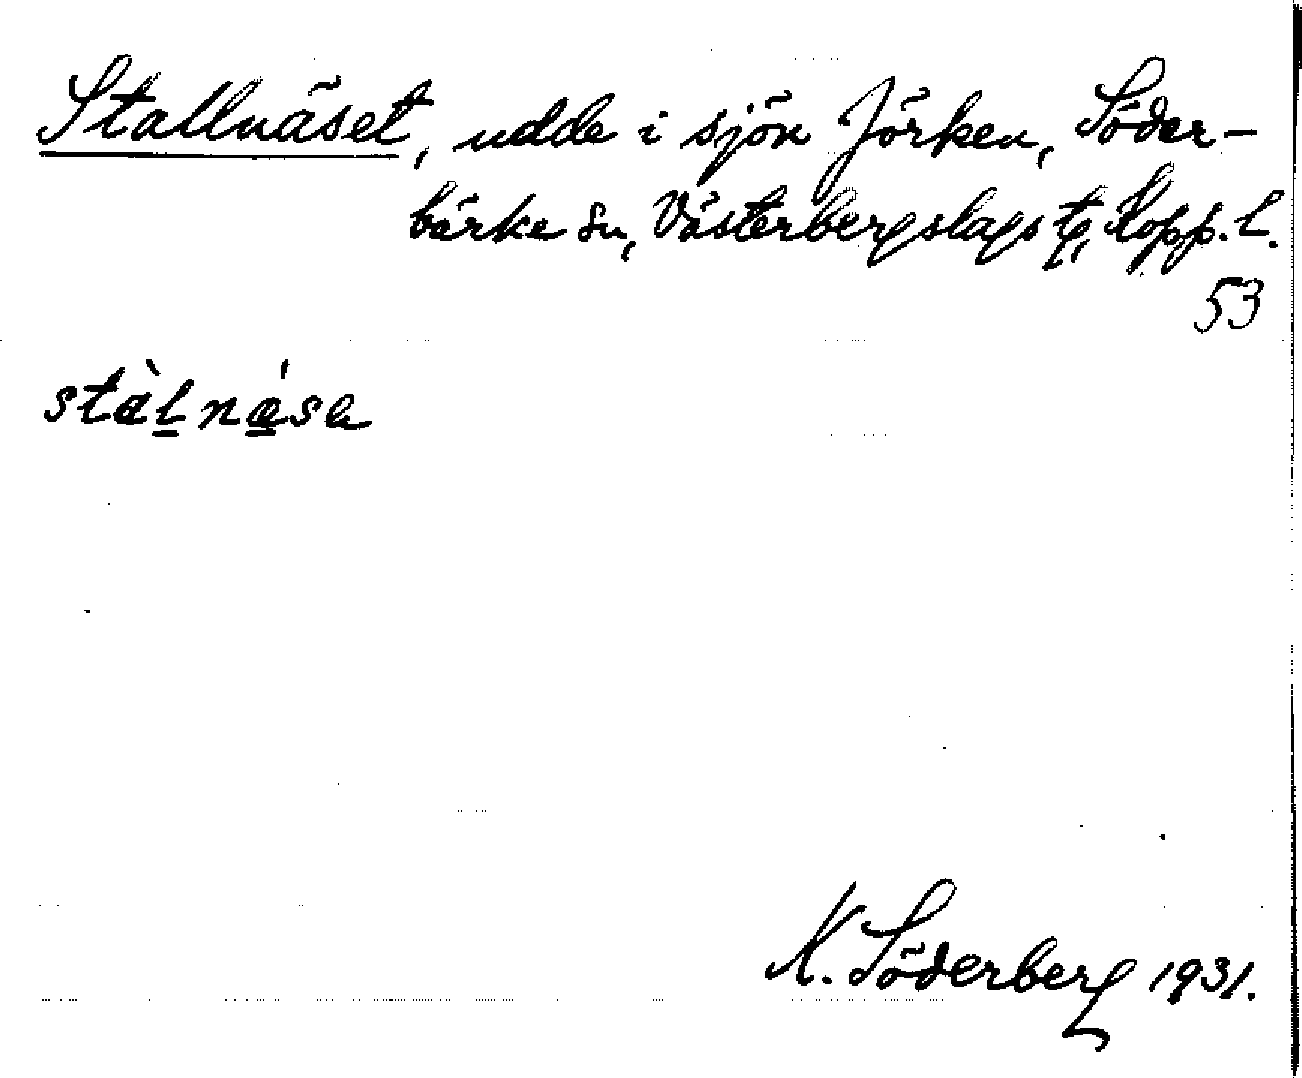 Stallnäset, udde i sjön Jörken, Söder-
bärke sn, Västerbergslags tg, Kopp. l.
53
stàl̠ nǽ̠sə
K. Söderberg 1931.